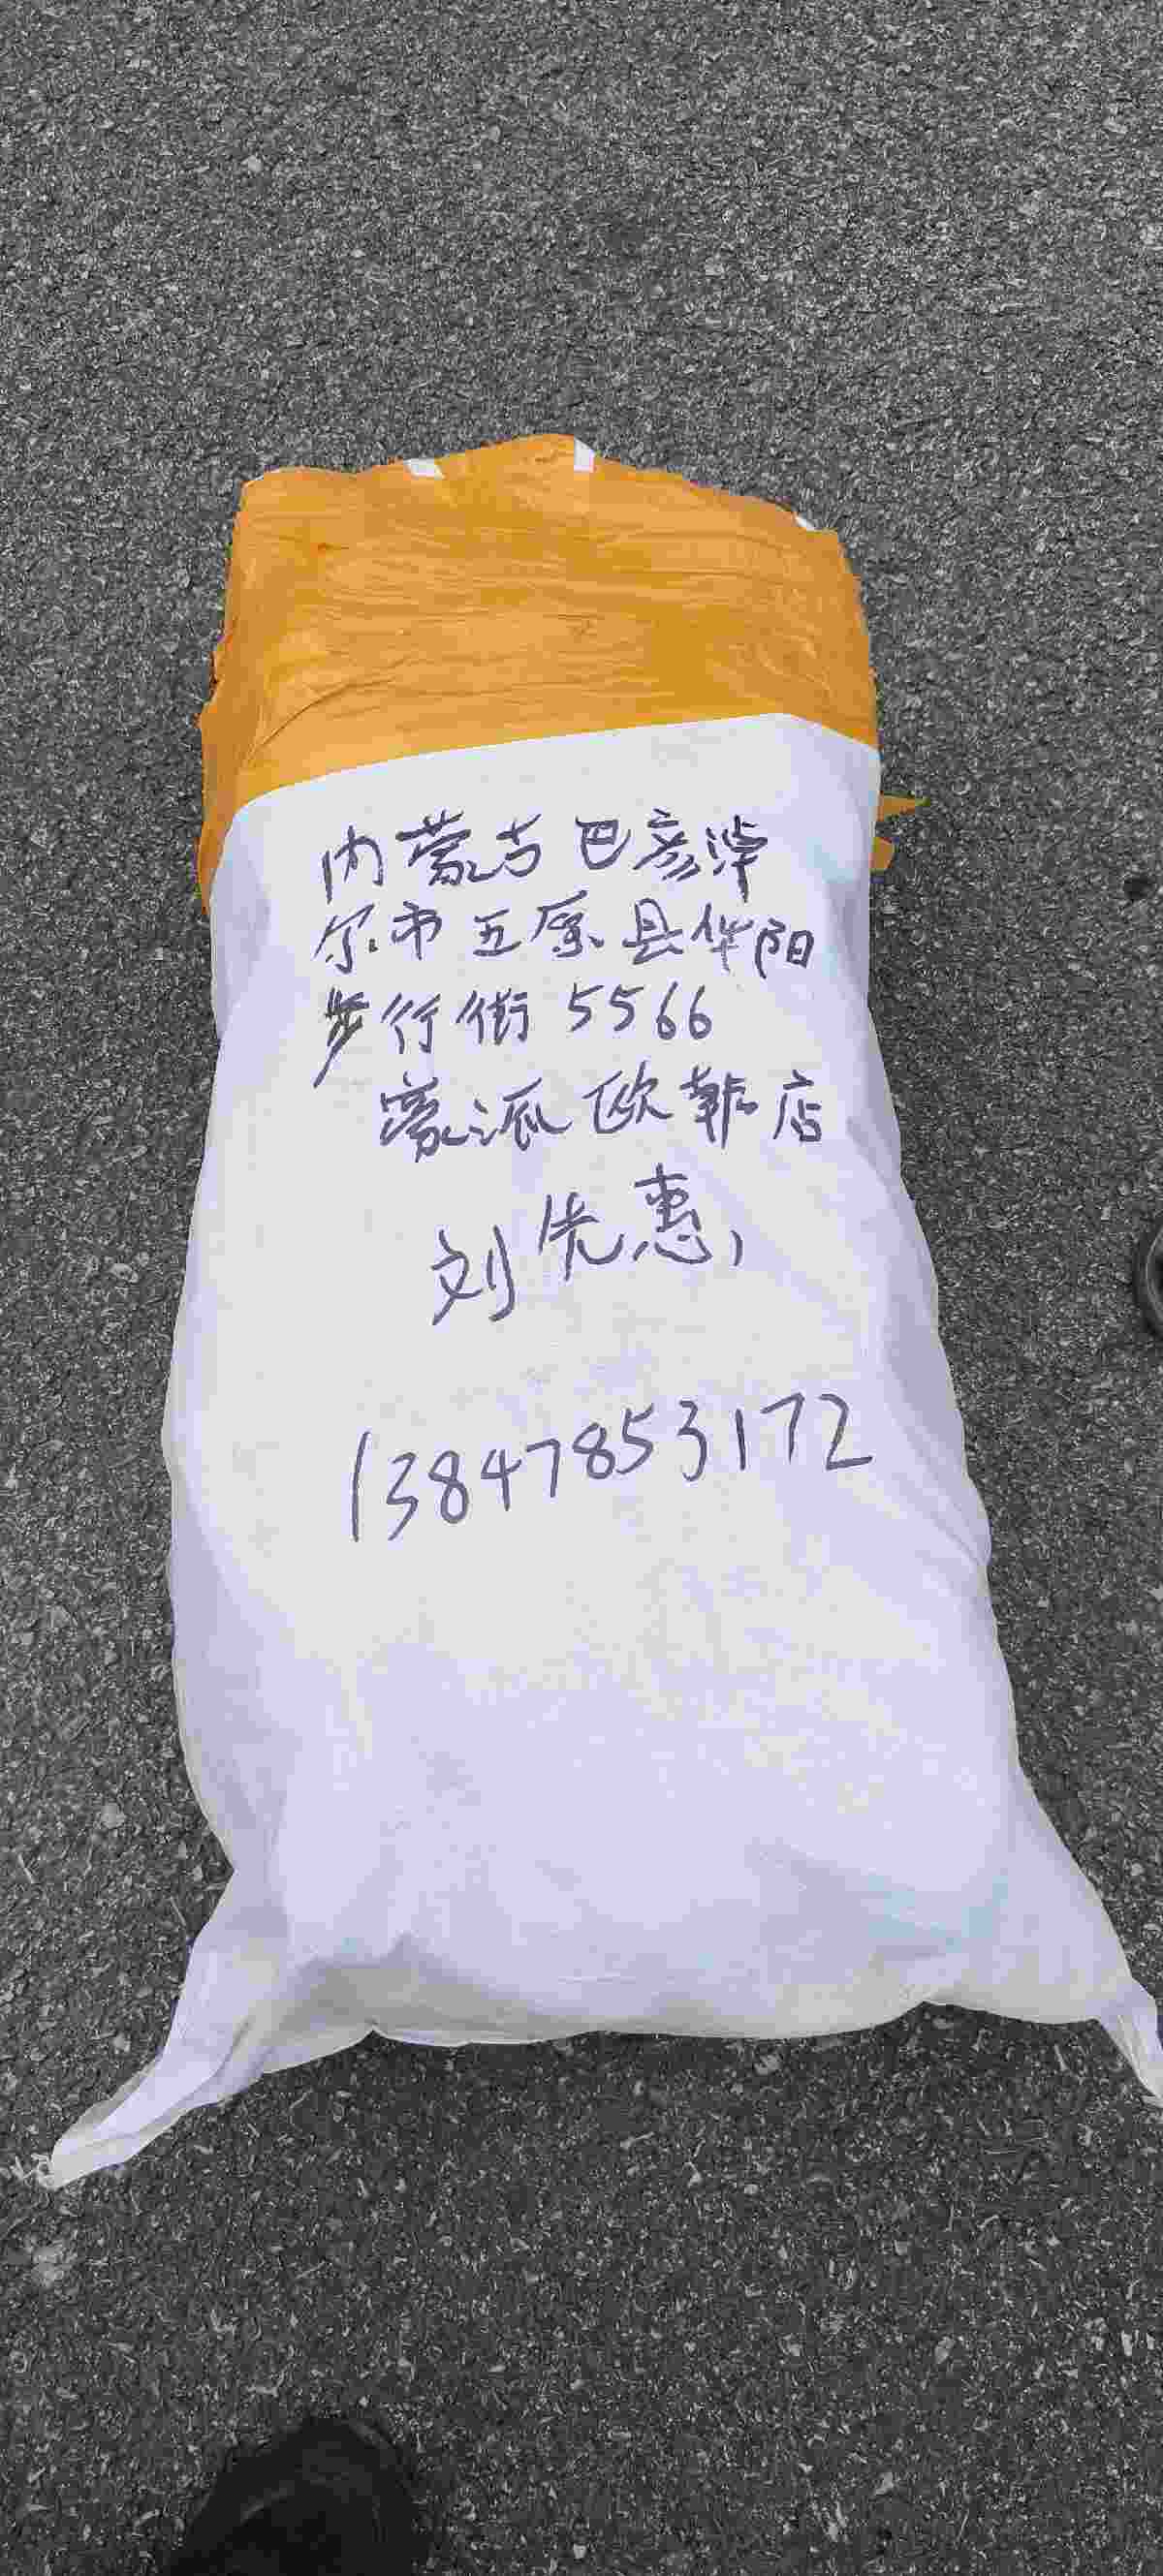 内蒙古巴彦淖
尔市五原县华阳
步行街5566
蒙派欧韩店
刘先惠
13847853172